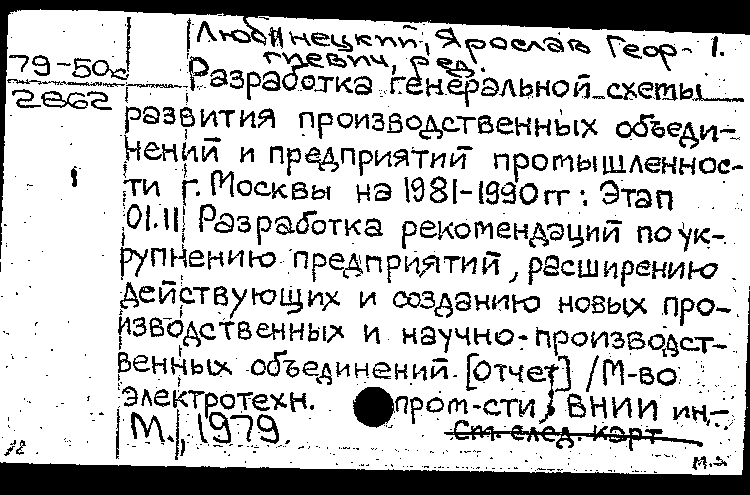 Любинецкий, Ярослав Геор- 1.
гиевич, ред.
79-50
2862
Разработка генеральной схемы
развития производственных объеди-
нений и предприятий промышленнос-
ти г. Москвы на 1981-1990 гг : Этап
01.11 Разработка рекомендаций по ук-
рупнению предприятий, расширению
действующих и созданию новых про-
изводственных и научно-производст-
венных объединений. [Отчет] / М-во
электротехн. пром-сти, ВНИИ ин-
М., 1979.
См. след. карт
12